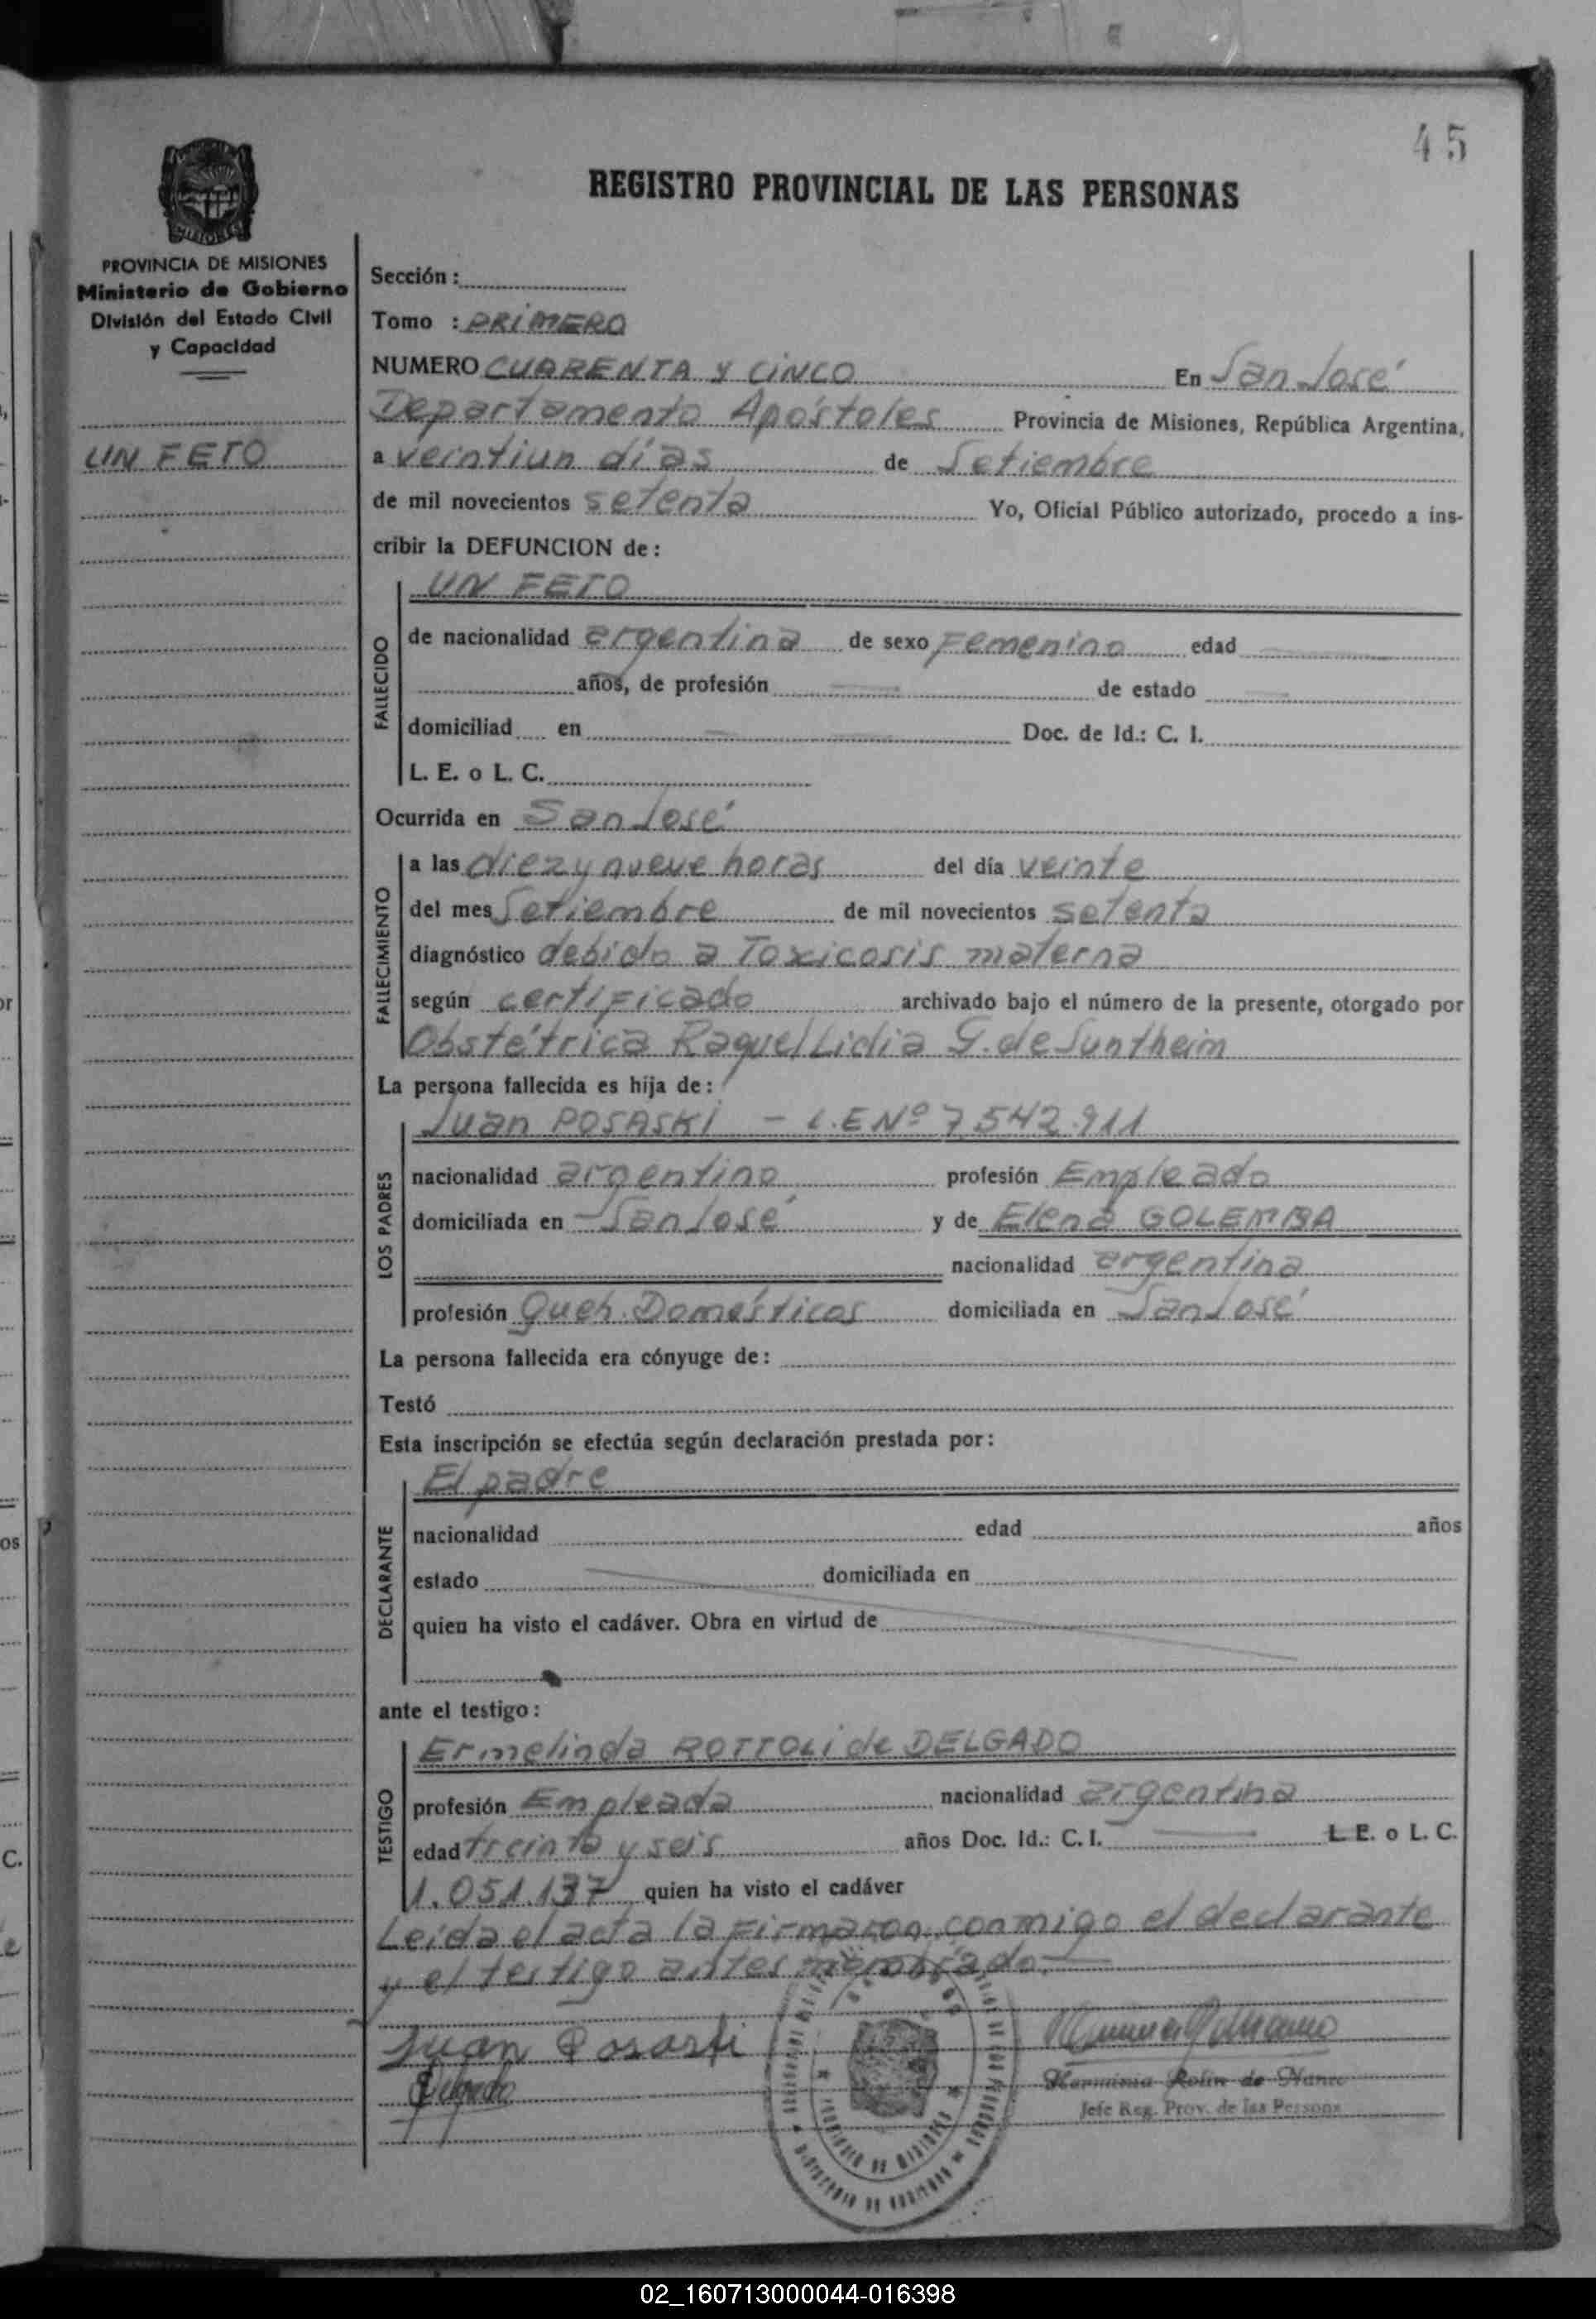 45
REGISTRO PROVINCIAL DE LAS PERSONAS
PROVINCIA DE MISIONES
Ministerio de Gobierno
División del Estado Civil
y Capacidad
UN FETO
Sección :
Tomo : PRIMERO
NUMERO CUARENTA Y CINCO En San José
Departamento Apóstoles Provincia de Misiones, República Argentina,
a veintiun días de Setiembre
de mil novecientos setenta Yo, Oficial Público autorizado, procedo a ins-
cribir la DEFUNCION de :
FALLECIDO
UN FETO
de nacionalidad argentina de sexo Femenino edad
años, de profesión de estado
domiciliad en Doc. de Id.: C. I.
L. E. o L. C.
Ocurrida en San José
FALLECIMIENTO
a las diez y nueve horas del día veinte
del mes Setiembre de mil novecientos setenta
diagnóstico debido a Toxicosis materna
según certificado archivado bajo el número de la presente, otorgado por
Obstétrica Raquel Lidia G. de Suntheim
La persona fallecida es hija de :
LOS PADRES
Juan POSASKI - L.E Nº 7.542.911
nacionalidad argentino profesión Empleado
domiciliada en San José y de Elena GOLEMBA
nacionalidad argentina
profesión Queh. Domésticos domiciliada en San José
La persona fallecida era cónyuge de :
Testó
Esta inscripción se efectúa según declaración prestada por :
DECLARANTE
El padre
nacionalidad edad años
estado domiciliada en
quien ha visto el cadáver. Obra en virtud de
ante el testigo :
TESTIGO
Ermelinda ROTTOLI de DELGADO
profesión Empleada nacionalidad argentina
edad treinta y seis años Doc. Id.: C. I. L. E. o L. C.
1.051.137 quien ha visto el cadáver
Leida el acta la Firmaron conmigo el declarante
y el testigo antes
Juan Posaski
Delgado
Jefe Reg. Prov. de las Persons
02_160713000044-016398